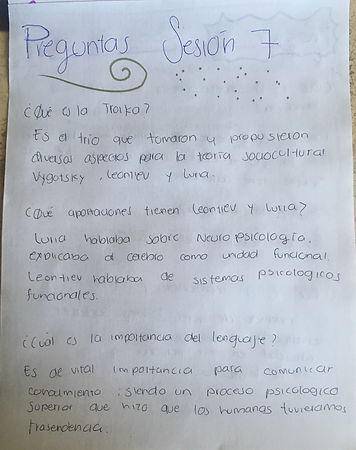 Preguntas Sesión 7
¿Qué es la Troika?
Es el trio que tomaron y propusieron
diversas aspectos para la teoría sociocultural
Vygotsky, Leontiev y Luria.
¿Qué aportaciones tienen Leontiev y Luria?
Luria hablaba sobre Neuropsicología,
explicaba al cerebro como unidad funcional.
Leontiev hablaba de sistemas psicologicos
funcionales.
¿Cuál es la importancia del lenguaje?
Es de vital importancia para comunicar
conocimiento, siendo un proceso psicologico
superior que hizo que los humanos tuvieramos
trasendencia.